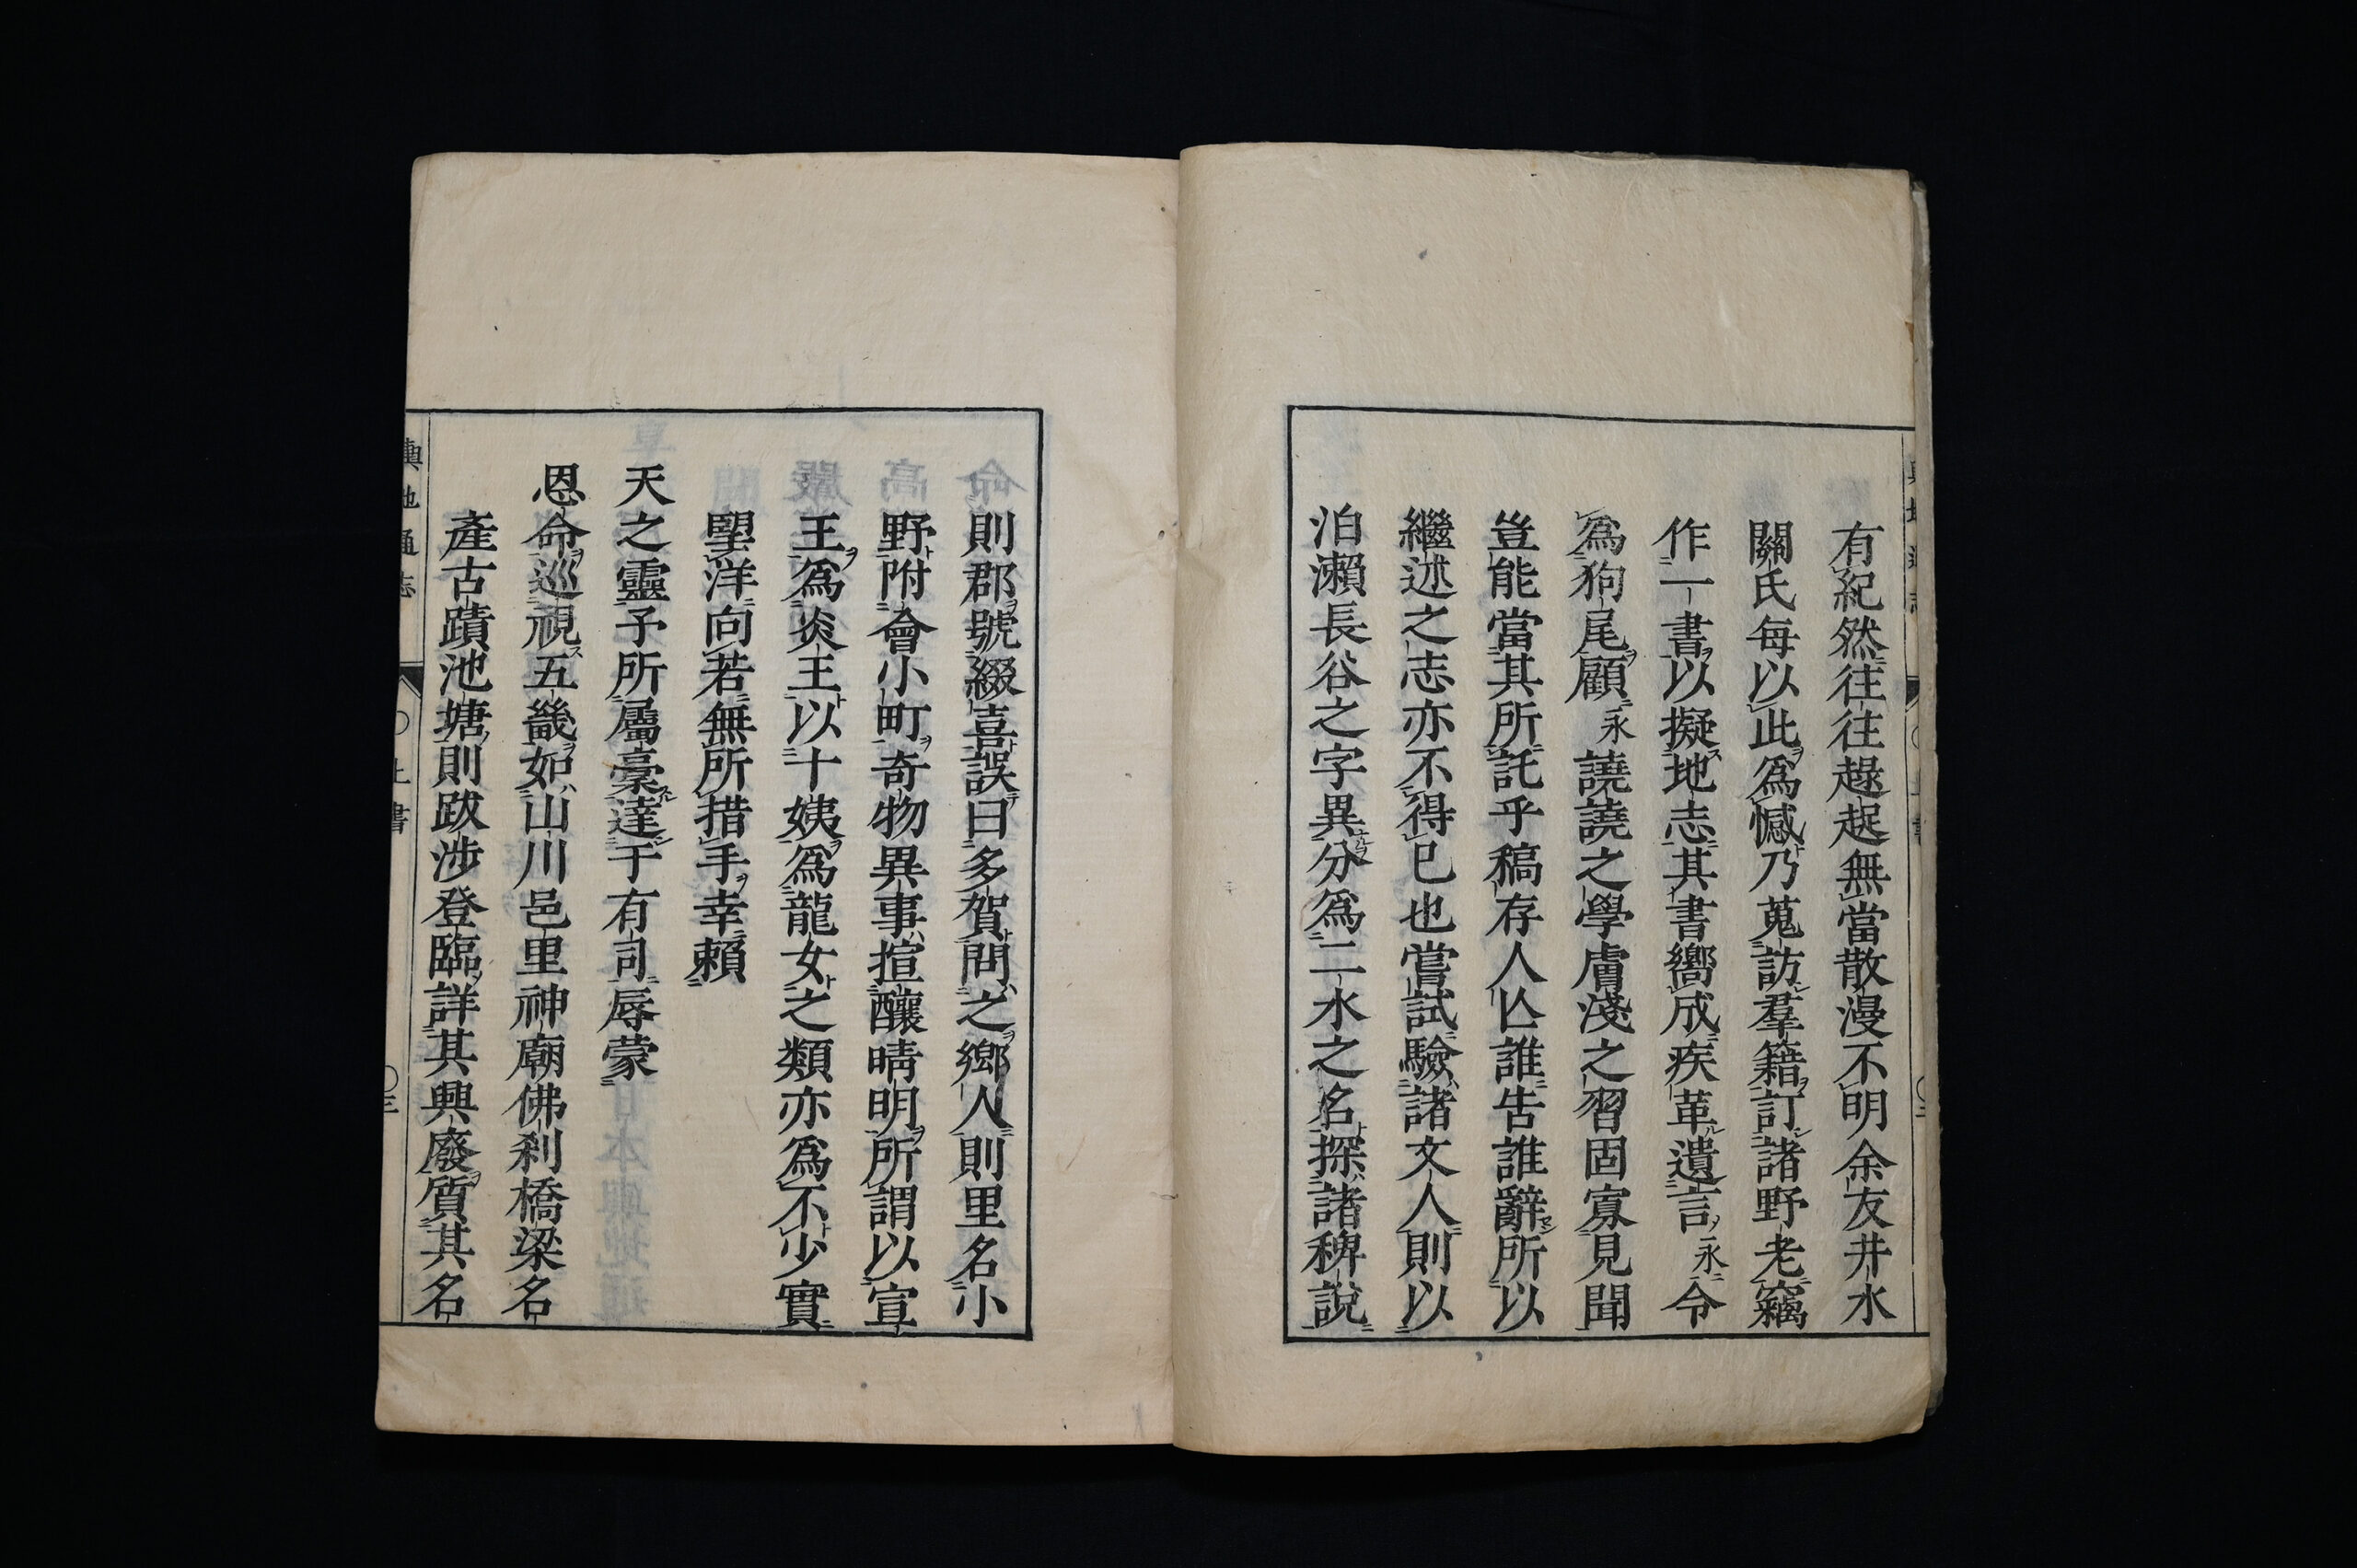 有紀然往往趦趄無當散漫不明余友井水
關氏每以此爲憾乃蒐訪羣籍訂諸野老竊
作一書以擬地志其書嚮成疾革遺言永令
爲狗尾顧永譊譊之學膚淺之習固寡見聞
豈能當其所託乎稿存人亾誰告誰辭所以
繼述之志亦不得已也嘗試驗諸文人則以
泊瀨長谷之字異分爲二水之名探諸稗說
則郡號綴喜誤曰多賀問之鄉人則里名小
野附會小町奇物異事揎釀晴明所謂以宣
王爲炎王以十姨爲龍女之類亦爲不少實
朢洋向若無所措手幸賴
天之靈予所屬稾達于有司辱蒙
恩命巡視五畿如山川邑里神廟佛刹橋梁名
產古蹟池塘則跋涉登臨詳其興廢質其名
輿地通志
上書
〇三